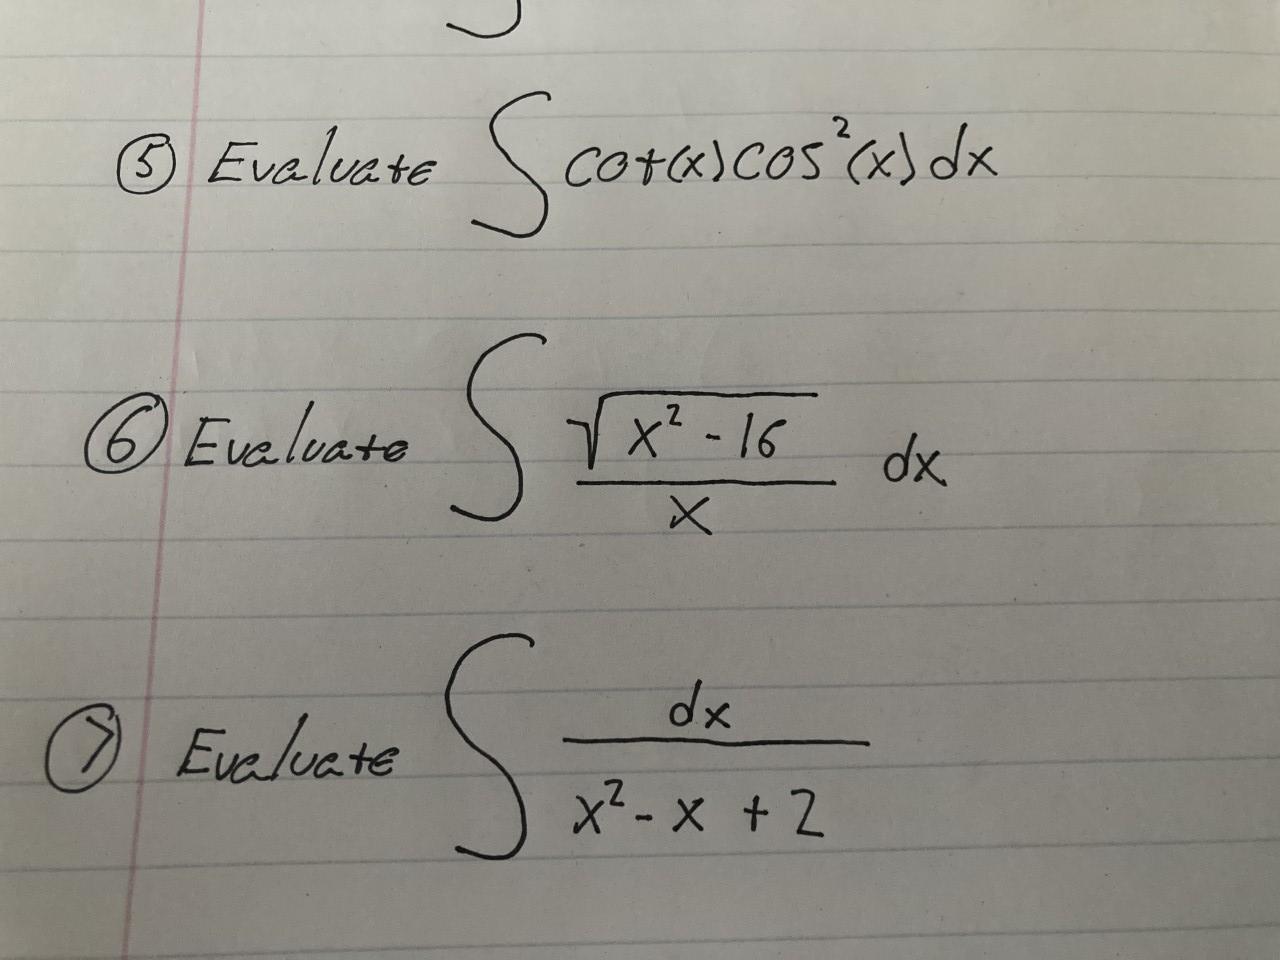 ⑤ Evaluate ∫ cot(x) cos²(x) dx
⑥ Evaluate ∫ √(x² - 16) / x dx
⑦ Evaluate ∫ dx / (x² - x + 2)